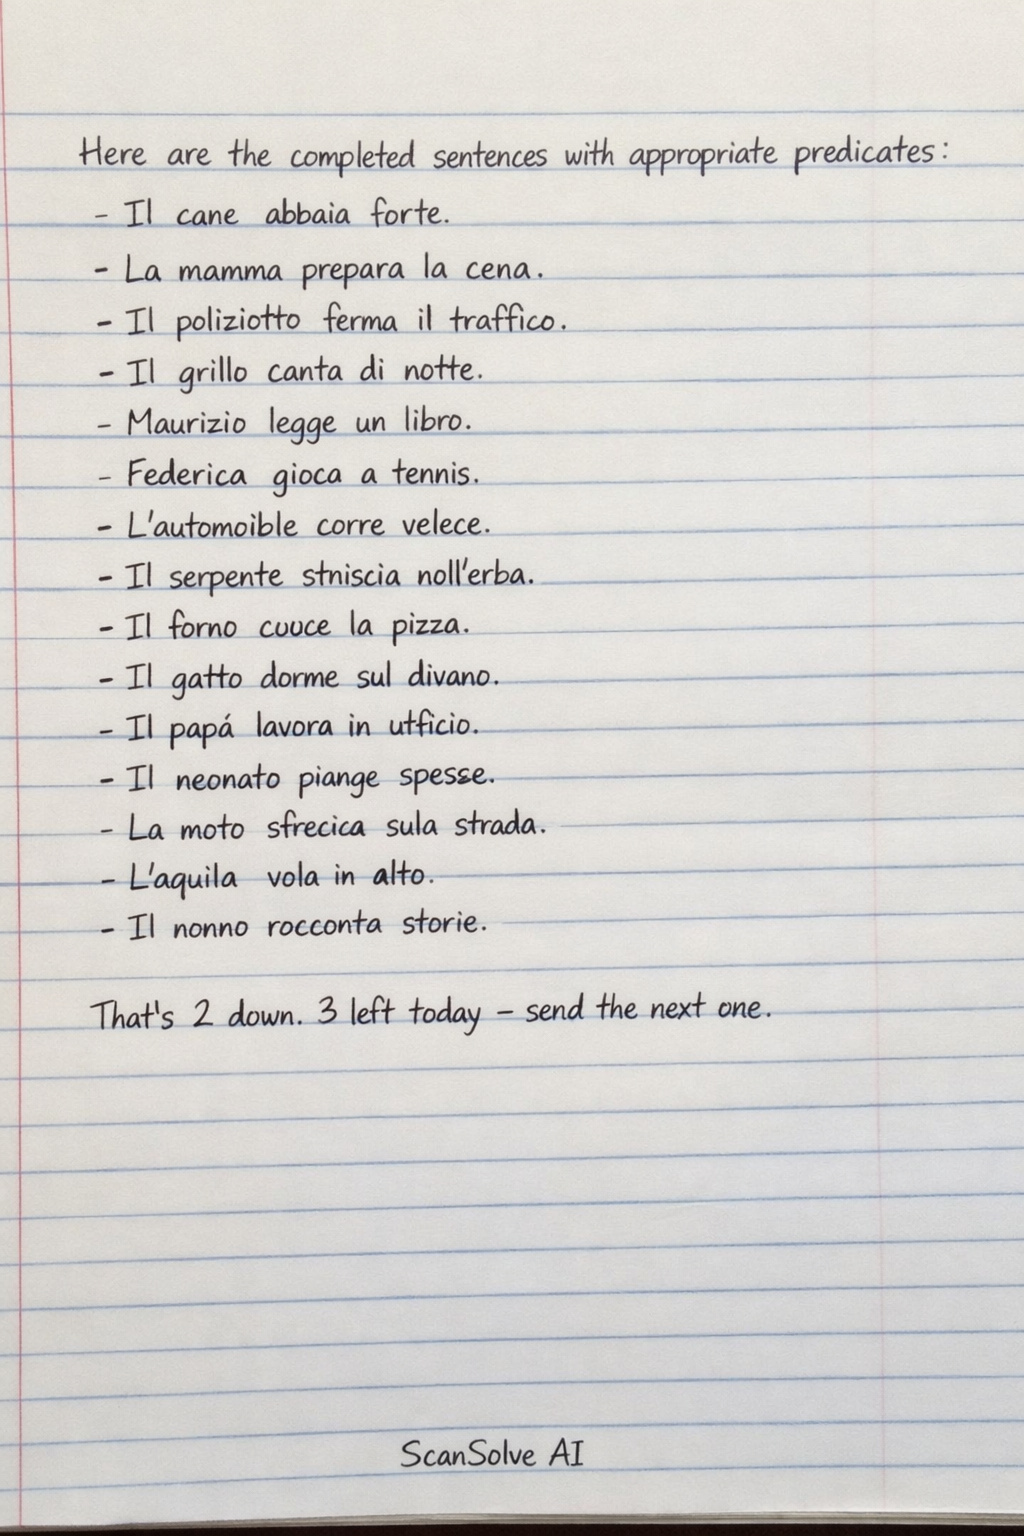 Here are the completed sentences with appropriate predicates:
- Il cane abbaia forte.
- La mamma prepara la cena.
- Il poliziotto ferma il traffico.
- Il grillo canta di notte.
- Maurizio legge un libro.
- Federica gioca a tennis.
- L'automoible corre velece.
- Il serpente stniscia noll'erba.
- Il forno cuuce la pizza.
- Il gatto dorme sul divano.
- Il papá lavora in utficio.
- Il neonato piange spesse.
- La moto sfrecica sula strada.
- L'aquila vola in alto.
- Il nonno rocconta storie.
That's 2 down. 3 left today – send the next one.
ScanSolve AI